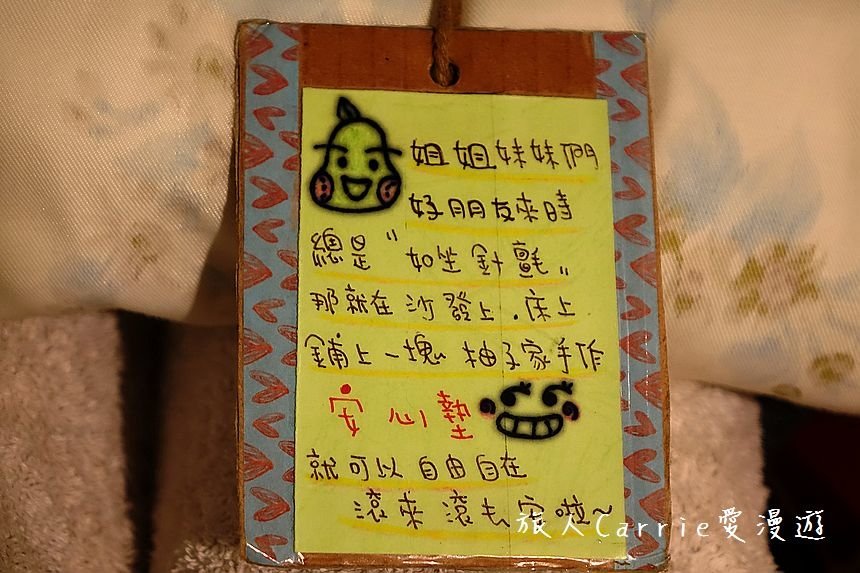 姐姐妹妹們
好朋友來時
總是"如坐針氈"
那就在沙發上.床上
鋪上一塊柚子家手作
安心墊
就可以自由自在
滾來滾去啦~
旅人Carrie愛漫遊